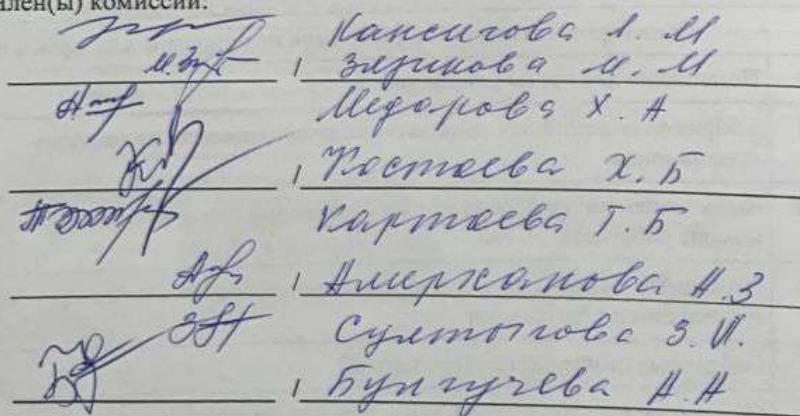 член(ы) комиссии:
Кансигова Л. М
М.Зяз / Зязикова М. М
Медарова Х. А
/ Костоева Х. Б
Картоева Т. Б
/ Амерханова А. З
Султыгова З. И.
/ Булгучева А. А